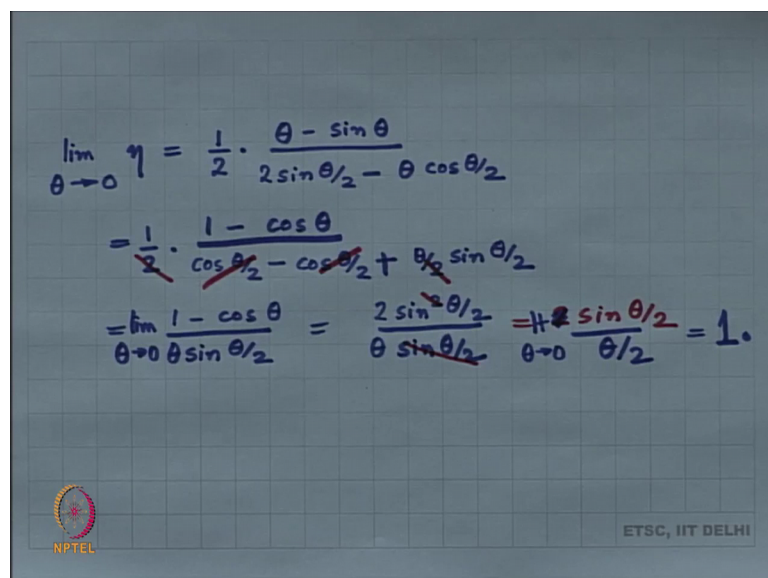 lim θ→0 η = 1/2 · (θ - sin θ)/(2 sin θ/2 - θ cos θ/2)
= 1/2 · (1 - cos θ)/(cos θ/2 - cos θ/2 + θ/2 sin θ/2)
= lim θ→0 (1 - cos θ)/(θ sin θ/2) = (2 sin² θ/2)/(θ sin θ/2) = lt θ→0 (sin θ/2)/(θ/2) = 1.
NPTEL
ETSC, IIT DELHI